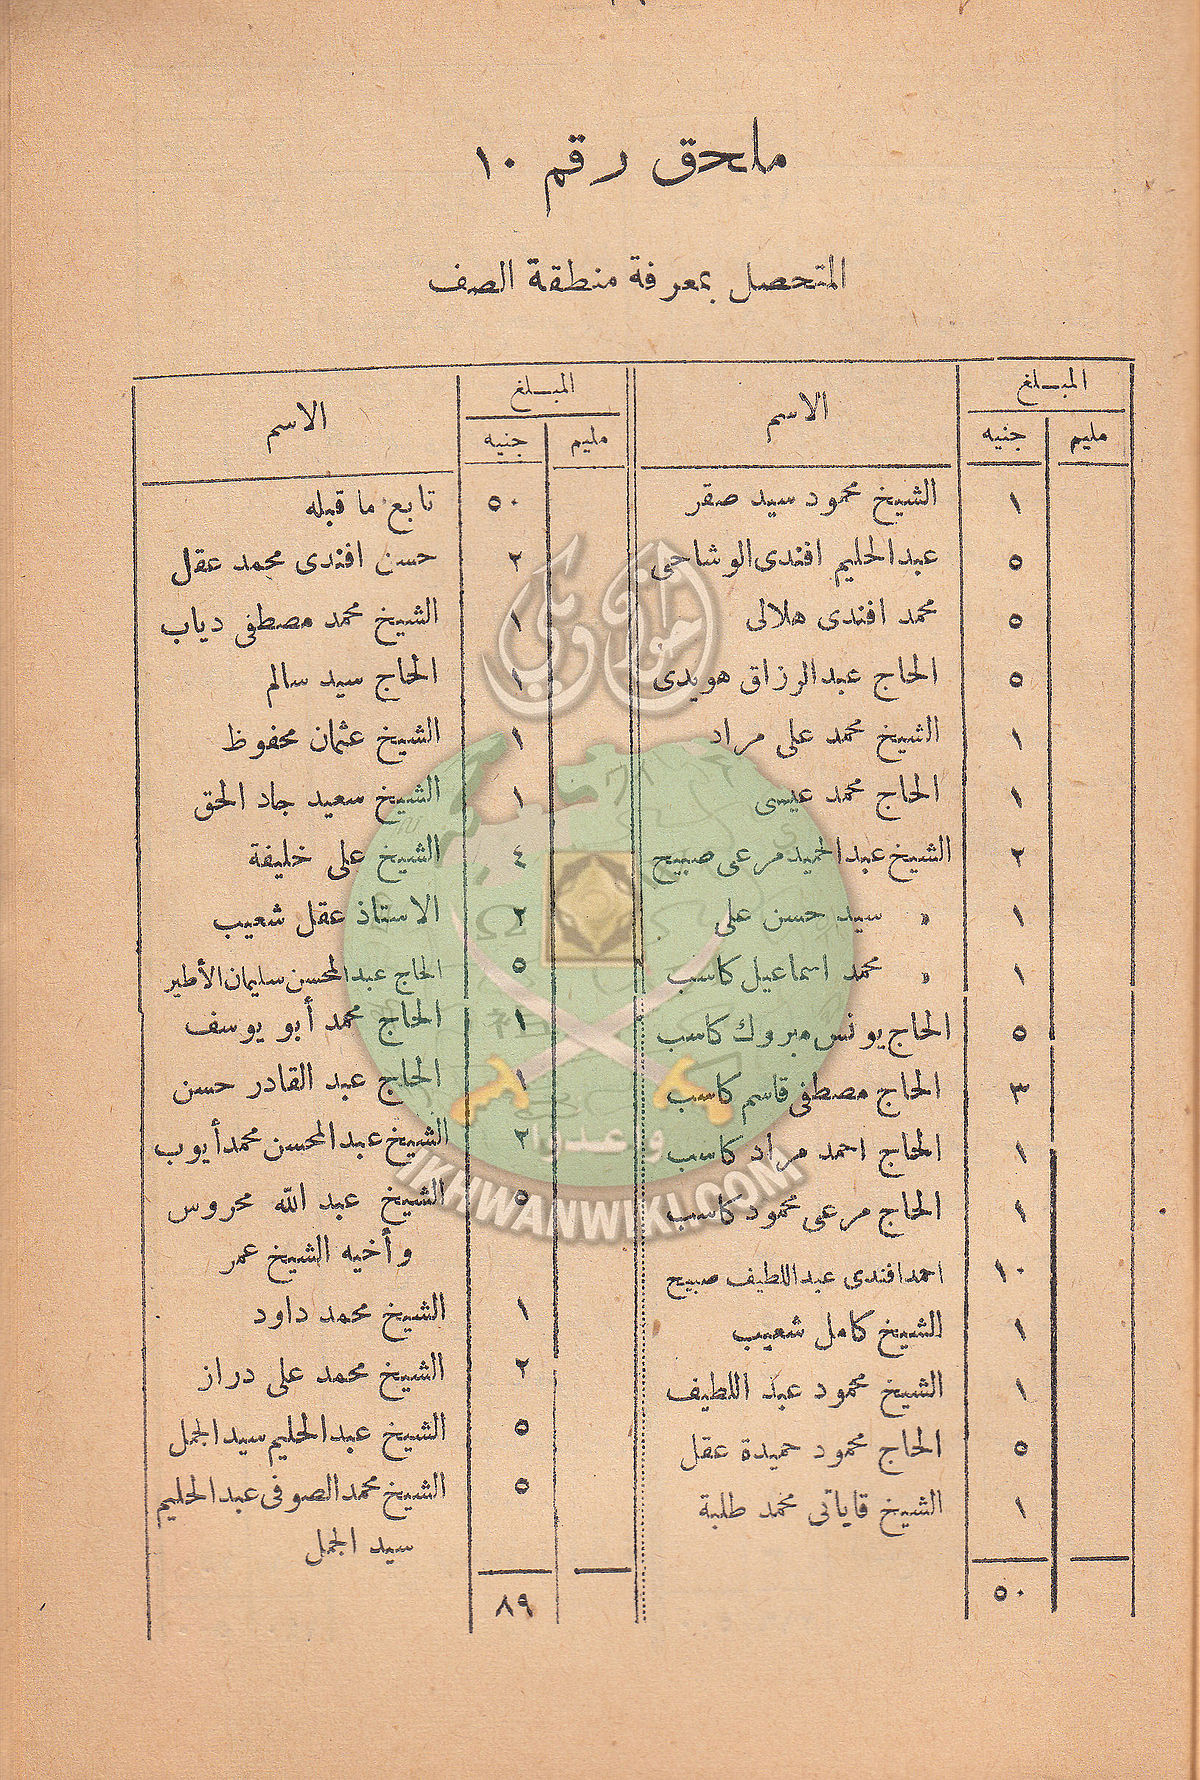 ملحق رقم ١٠
المتحصل بمعرفة منطقة الصف
المبلغ الاسم
مليم جنيه
١ الشيخ محمود سيد صقر
٥ عبد الحليم افندى الوشاحى
٥ محمد افندى هلالى
٥ الحاج عبد الرزاق هويدى
١ الشيخ محمد على مراد
١ الحاج محمد عيسى
٢ الشيخ عبد الحميد مرعى صبيح
١ » سيد حسن على
١ » محمد اسماعيل كاسب
٥ الحاج يونس مبروك كاسب
٣ الحاج مصطفى قاسم كاسب
١ الحاج احمد مراد كاسب
١ الحاج مرعى محمود كاسب
١٠ احمد افندى عبد اللطيف صبيح
١ الشيخ كامل شعيب
١ الشيخ محمود عبد اللطيف
٥ الحاج محمود حميدة عقل
١ الشيخ قاياتى محمد طلبة
٥٠
المبلغ الاسم
مليم جنيه
٥٠ تابع ما قبله
٢ حسن افندى محمد عقل
١ الشيخ محمد مصطفى دياب
١ الحاج سيد سالم
١ الشيخ عثمان محفوظ
١ الشيخ سعيد جاد الحق
٤ الشيخ على خليفة
٢ الاستاذ عقل شعيب
٥ الحاج عبد المحسن سليمان الأطير
١ الحاج محمد أبو يوسف
١ الحاج عبد القادر حسن
٢ الشيخ عبد المحسن محمد أيوب
٥ الشيخ عبد الله محروس
وأخيه الشيخ عمر
١ الشيخ محمد داود
٢ الشيخ محمد على دراز
٥ الشيخ عبد الحليم سيد الجمل
٥ الشيخ محمد الصوفى عبد الحليم
سيد الجمل
٨٩
إخوان ويكي
وأعدوا
IKHWANWIKI.COM